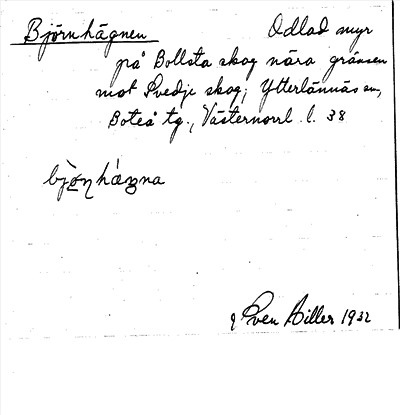 Björnhägnen Odlad myr
på Bollsta skog nära gränsen
mot Svedje skog, Ytterlännäs sn,
Boteå tg., Västernorrl. l. 38
Sven Hiller 1932